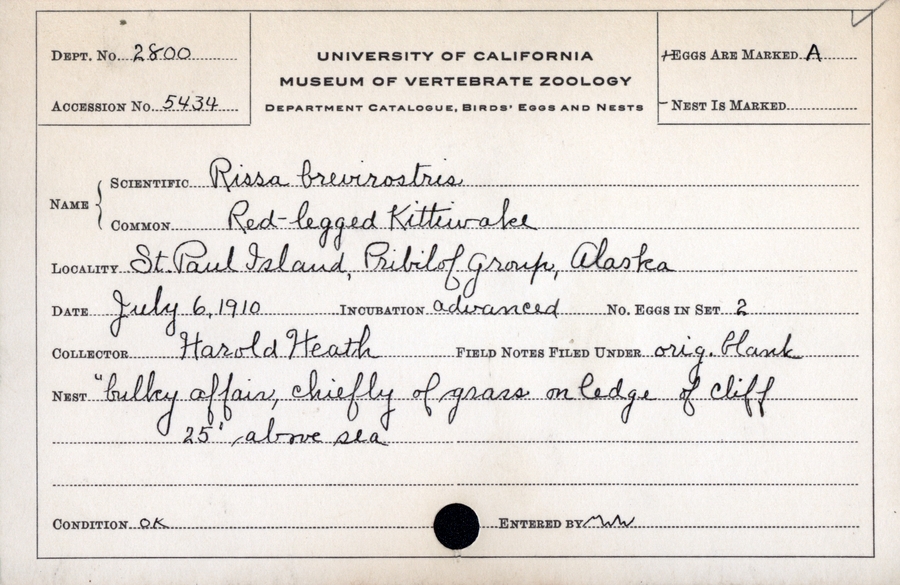 Dept. No. 2800
Accession No. 5434
UNIVERSITY OF CALIFORNIA
MUSEUM OF VERTEBRATE ZOOLOGY
Department Catalogue, Birds' Eggs and Nests
Eggs Are Marked A
Nest Is Marked
Name
Scientific Rissa brevirostris
Common Red-legged Kittiwake
Locality St. Paul Island, Pribilof Group, Alaska
Date July 6, 1910 Incubation advanced No. Eggs in Set 2
Collector Harold Heath Field Notes Filed Under orig. blank
Nest "bulky affair, chiefly of grass on ledge of cliff
25' above sea
Condition OK Entered by